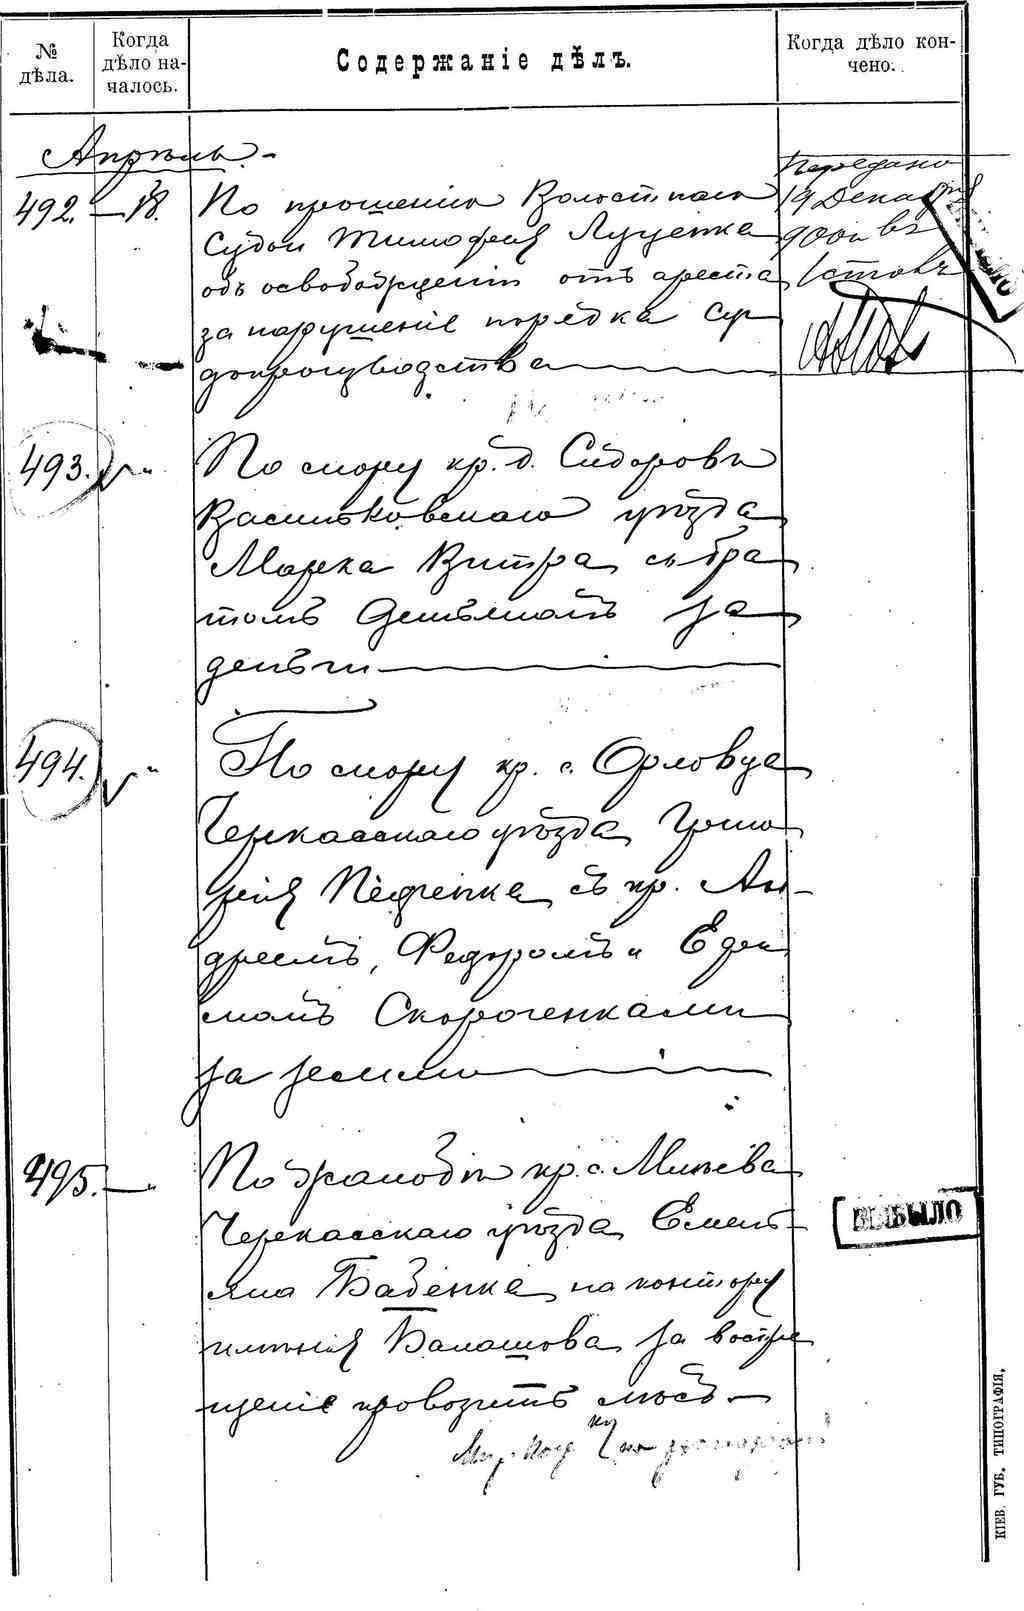 № дѣла.
Когда дѣло на-
чалось.
Содержаніе дѣлъ.
Когда дѣло кон-
чено.
Апрѣль.
492. — 18. По прошенію Волостнаго
Судьи Тимофея Луценка
объ освобожденіи отъ ареста
за нарушеніе порядка су-
допроизводства
Передано
19 Дека
900 въ
493. " По спору кр. д. Сидоровъ
Васильковскаго уѣзда
Марка Витра съ бра
томъ Демьяномъ за
деньги
494. " По спору кр. с. Орловца
Черкасскаго уѣзда Григо
рія Педченка съ кр. Ан-
дреемъ, Федоромъ и Ефи
момъ Скороченками
за землю
495. — " По жалобѣ кр. с. Млѣева
Черкасскаго уѣзда Емель-
яна Бабенка на контору
имѣнія Балашова за воспре
щеніе провозить лѣсъ. —
ВЫБЫЛО
КІЕВ. ГУБ. ТИПОГРАФІЯ.